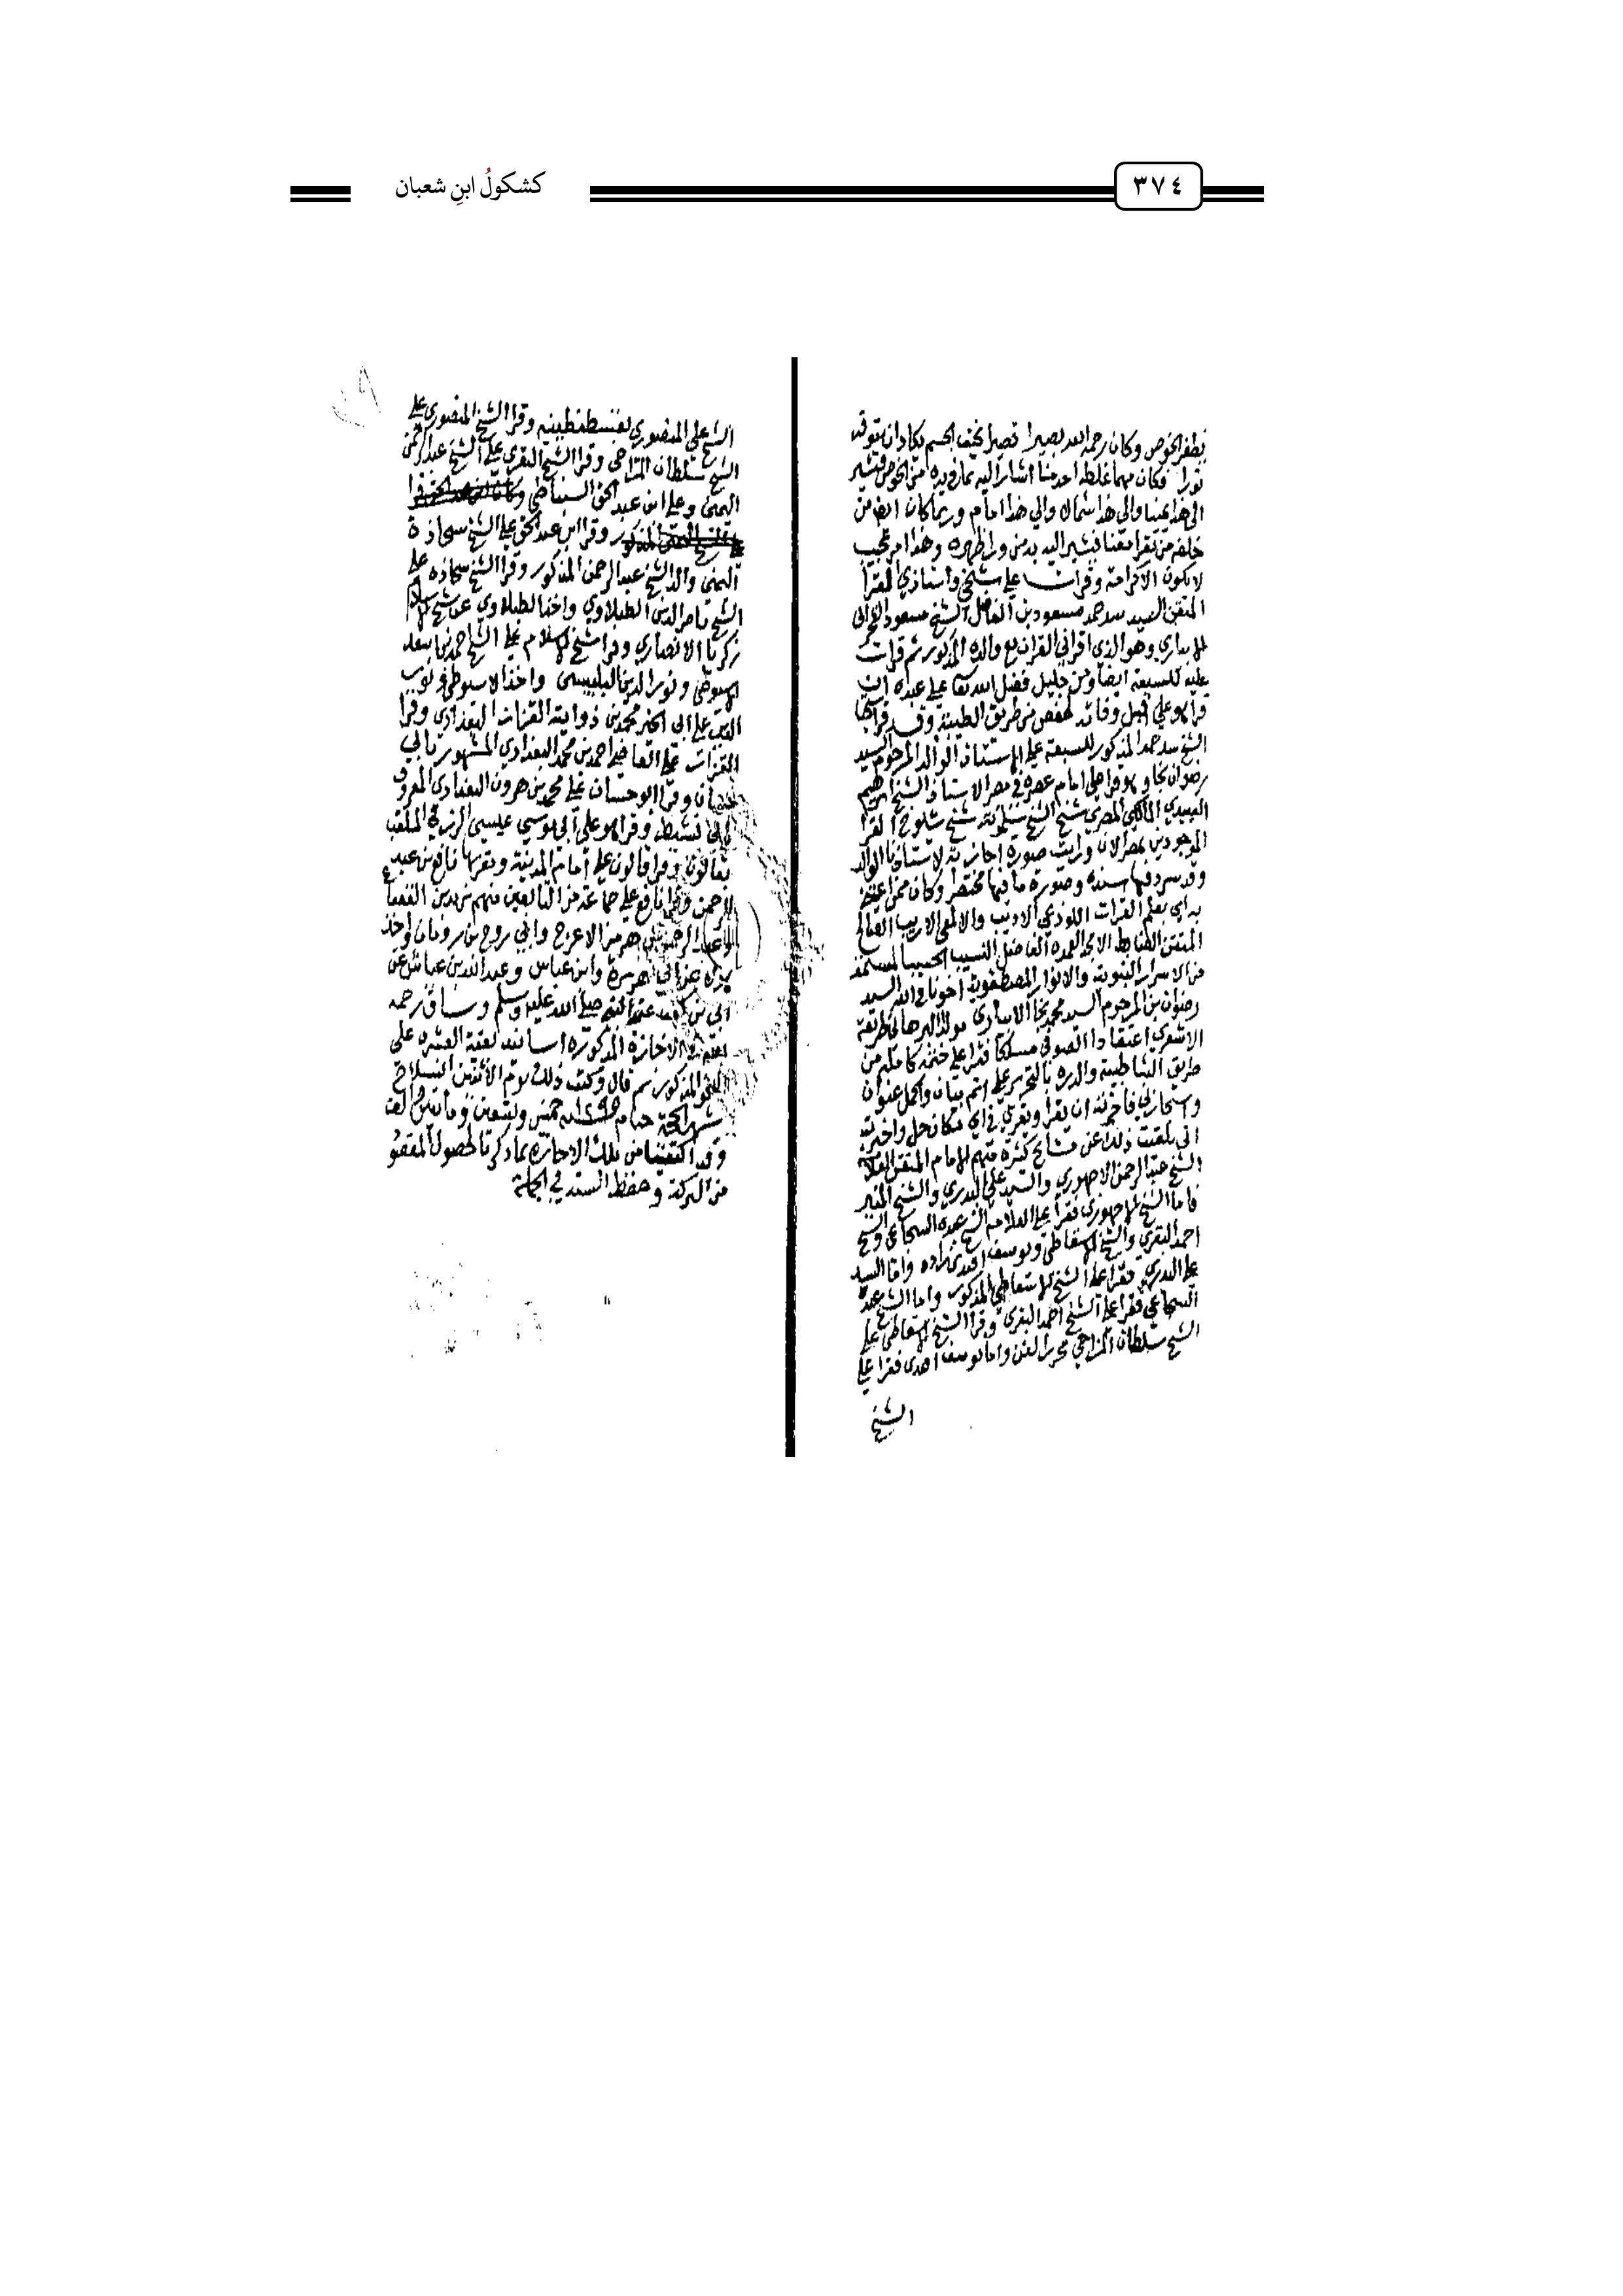 ٣٧٤
كشكولُ ابنِ شعبان
وكان رحمه الله بصيرا قصيرا نحيف الجسم يكاد ان يتوقد
نورا وكان مهما غلط احد منا اشار اليه بما في يده من الخوص فيشير
الى هذا يمينا والى هذا شماله والى هذا امام وربما كان ايضا من
خلفه من يقرا معنا فيشير اليه يده من وراء ظهره وهذا امر عجيب
لا يكون الا كرامة وقرات على شيخي واستاذي المقرأ
المتقن السيد مسعود بن الفاضل الشيخ مسعود
الابياري وهو الذي اقراني القران مع والده المذكور ثم قرات
عليه للسبعة ايضا ومن جليل فضل الله تعا على عبده ان
قراء هو علي قبل وفاته لحفص من طريق الطيبة وقد قراها
الشيخ المذكور للسبعة على الاستاذ الوالد المرحوم السيد
رضوان نجا وهو قرا على امام عصره في مصر الاستاذ الشيخ ابراهيم
العبيدي المالكي المصري شيخ الشيخ سلمونه شيخ شيوخ القرا
الموجودين بمصر الان ورايت صورة اجازته لاستاذنا الوالد
وقد سرد فيها سنده وصورة ما فيها مختصر وكان ممن اعتنى
به اي بعلم القرات اللوذعي الاديب والالمعي الاريب الصالح
المتقن الضابط الامجد العمده الفاضل النسيب الحسيب المستمد
من الاسرار النبوية والانوار المصطفوية اخونا في الله السيد
رضوان بن المرحوم السيد محمد نجا الابياري مولدا البرهاني طريقة
الاشعري اعتقادا الصوفي مسلكا فقرا علي ختمة كاملة من
طريق الشاطبية والدره بالتحرير على اتم بيان واكمل عنوان
واستجازني فاجزته ان يقرأ ويقري في اي مكان حل واخبرته
اني تلقيت ذلك عن مشايخ كثيرة منهم الامام المتقن العلامة
الشيخ عبد الرحمن الاجهوري والسيد علي البدري والشيخ المنير
فاما الشيخ الاجهوري فقرأ على العلامة الشيخ عبده السجاعي والشيخ
احمد البقري والشيخ الاسقاطي ويوسف افندي زاده واما السيد
علي البدري فقرا على الشيخ الاسقاطي المذكور واما الشيخ عبده
السجاعي فقرا على الشيخ احمد البقري وقرا الشيخ الاسقاطي على
الشيخ سلطان المزاحي محرر الفن واما يوسف افندي فقرا على
الشيخ
الشيخ علي المنصوري بقسطنطينيه وقرا الشيخ المنصوري على
الشيخ سلطان المزاحي وقرا الشيخ البقري على الشيخ عبد الرحمن
اليمني وعلى ابن عبد الحق السنباطي
المذكور وقرا ابن عبد الحق على الشيخ سحاذة
اليمني والد الشيخ عبد الرحمن المذكور وقرا الشيخ سحاذه على
الشيخ ناصر الدين الطبلاوي واخذ الطبلاوي عن شيخ الاسلام
زكريا الانصاري وقرا شيخ الاسلام على الشيخ احمد بن اسعد
الاسيوطي ونور الدين البلبيسي واخذ الاسيوطي
على ابي محمد بن القزاز البغدادي وقرا
القزاز على القاضي احمد بن محمد البغدادي المشهور بابي
حسان وقرا ابو حسان على محمد بن هرون البغدادي المعروف
بابي نشيط وقرا هو على ابي موسى عيسى الزرقي الملقب
بقالون وقرا قالون على امام المدينة ومقريها نافع بن عبد
الرحمن وقرا نافع على جماعة من التابعين منهم يزيد بن القعقاع
وعبد الرحمن بن هرمز الاعرج وابي روح بن رومان واخذ
يزيد عن ابي هريرة وابن عباس وعبد الله بن عياش عن
ابي بن كعب عن النبي صلى الله عليه وسلم وساق رحمه
الاجازة المذكورة اسانيد لبقية العشره على
النحو المذكور ثم قال وكتب ذلك يوم الاثنين انسلاخ
شهر الحجة ختام ١٢٩٥ سنه خمس وتسعين ومايتين والف
وقد اكتفينا من تلك الاجازة بما ذكرنا لحصول المقصو
من البركة وحفظ السند في الجملة